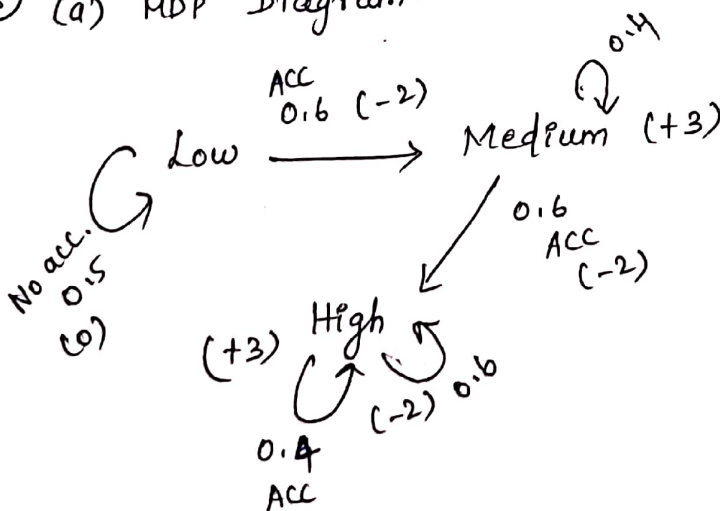 (a) MDP Diagram
0.4
ACC
0.6 (-2)
Low
Medium (+3)
No acc.
0.5
(0)
0.6
ACC
(-2)
High
(+3)
(-2) 0.6
0.4
ACC